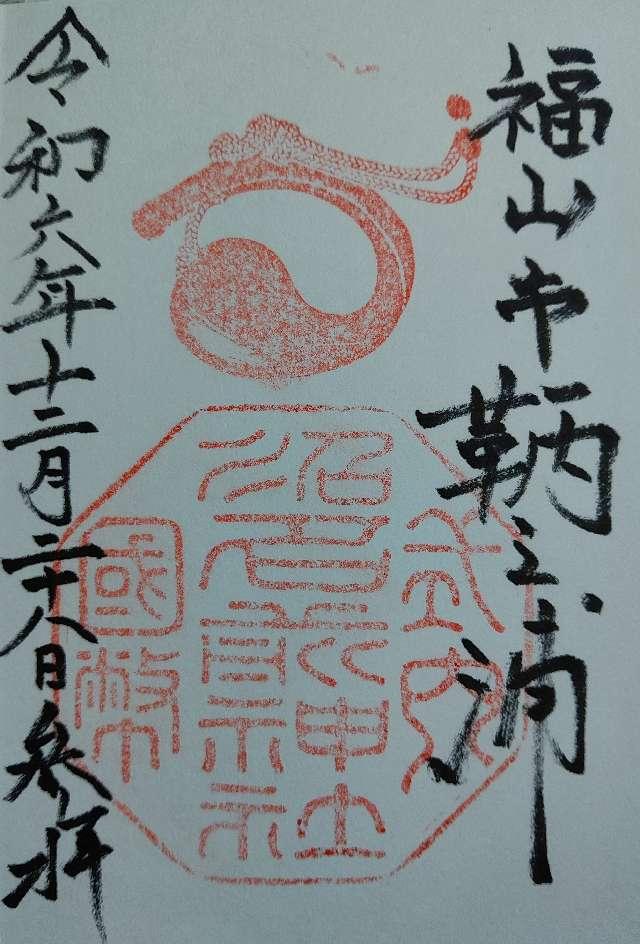 福山市鞆之浦
式内
沼名前神社
國幣
令和六年十二月二十八日参拝